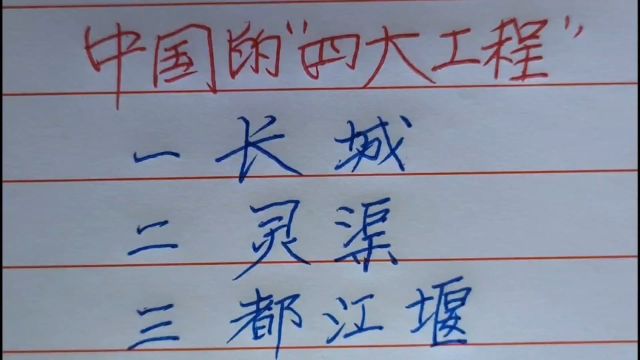 中国的“四大工程”
一 长城
二 灵渠
三 都江堰